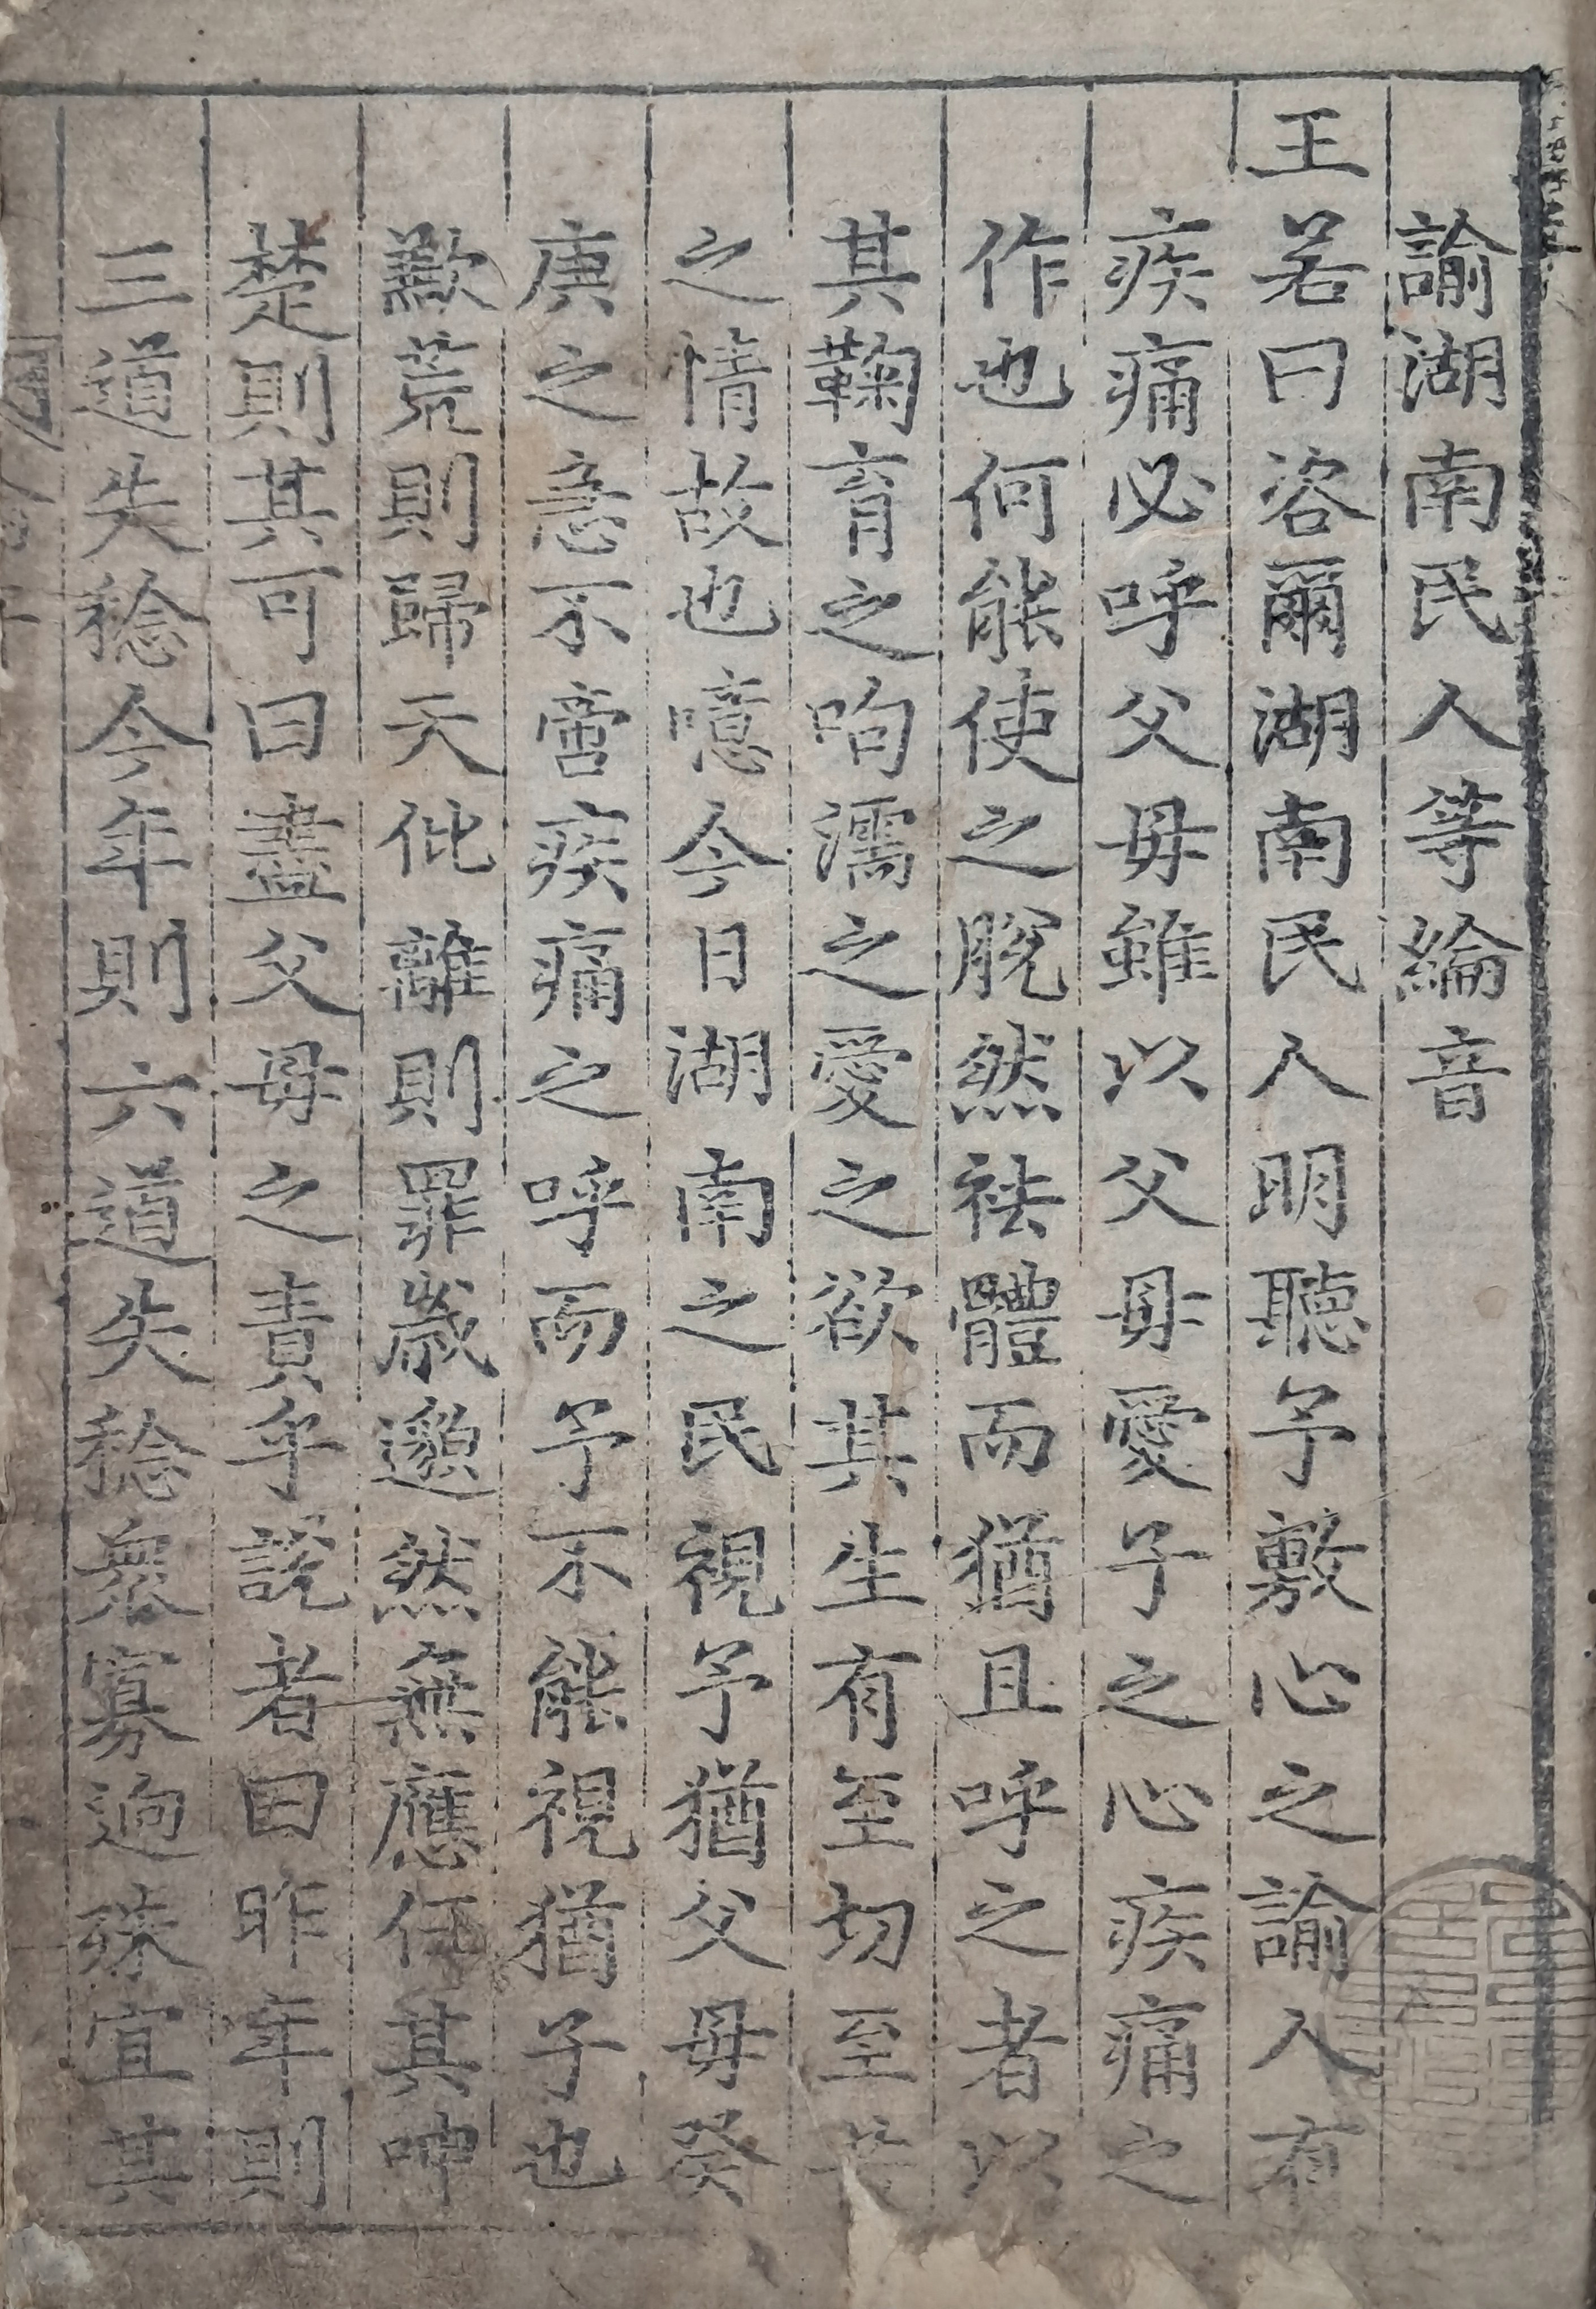 諭湖南民人等綸音
王若曰咨爾湖南民人明聽予敷心之諭人有
疾痛必呼父母雖以父母愛子之心疾痛之
作也何能使之脫然祛體而猶且呼之者以
其鞠育之呴濡之愛之欲其生有至切至
之情故也噫今日湖南之民視予猶父母癸
庚之急不啻疾痛之呼而予不能視猶子也
歉荒則歸天仳離則罪歲邈然無應任其呻
楚則其可曰盡父母之責乎說者曰昨年則
三道失稔今年則六道失稔衆寡逈殊宜其